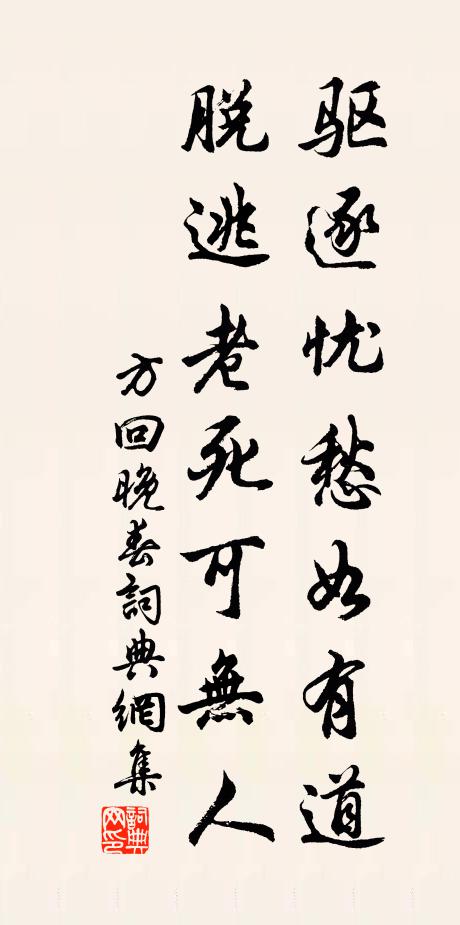 驱逐忧愁如有道
脱逃老死可無人
方回晚春詞典網集
詞典网印